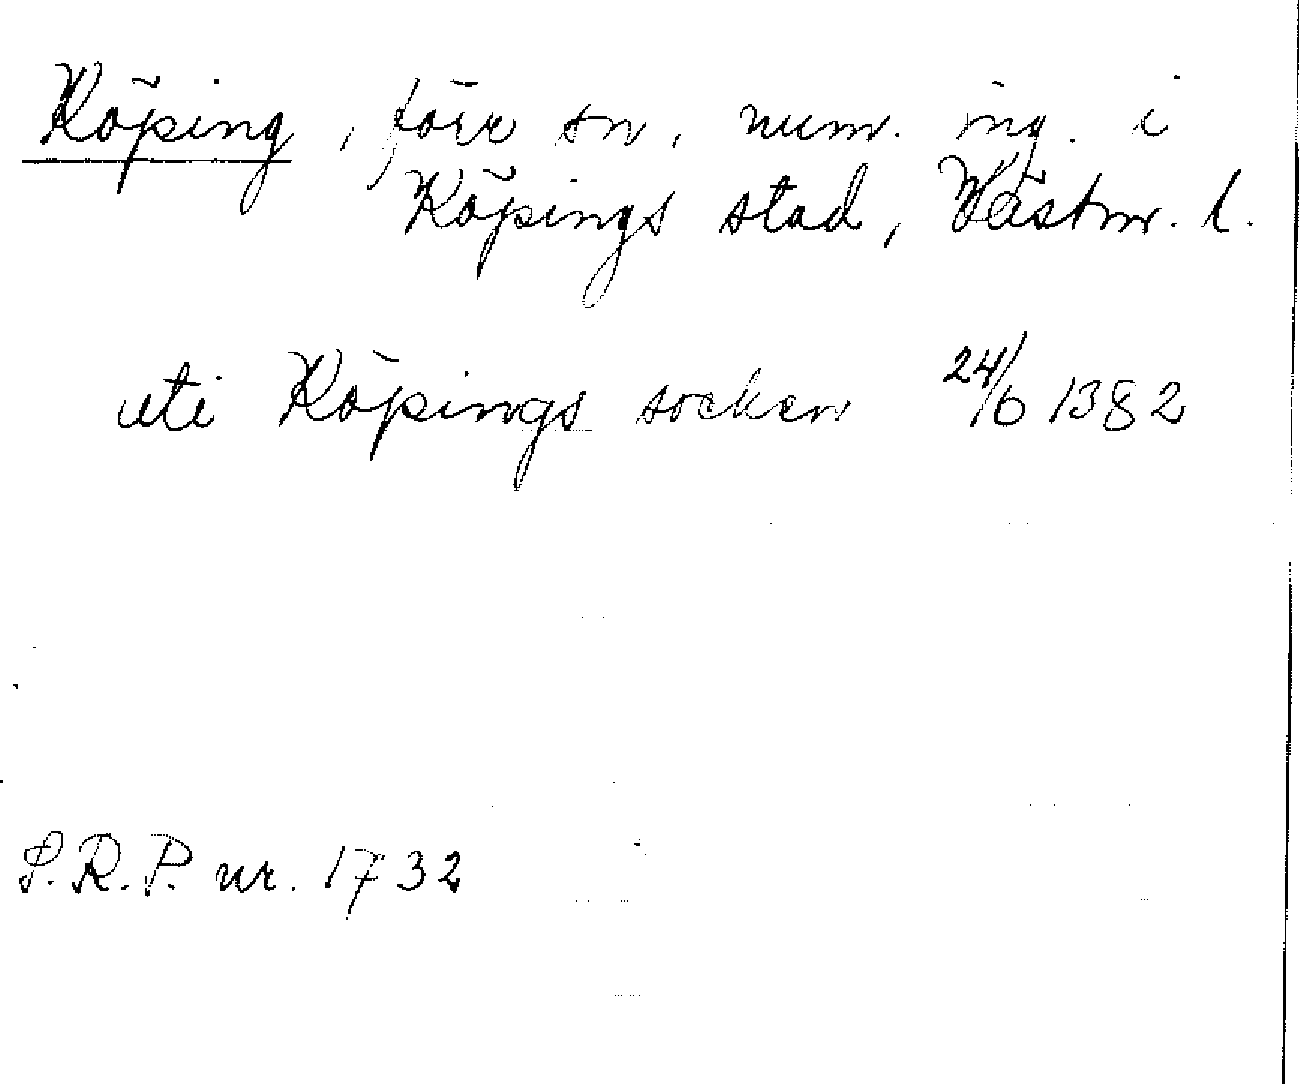 Köping, förr sn, num. ing. i
Köpings stad, Västm. l.
uti Köpings socken 24/6 1382
S.R.P. nr. 1732